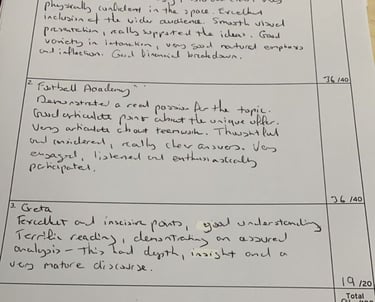 physically confident in the space. Excellent
inclusion of the wider audience. Smooth visual
presentation, really supported the ideas. Good
variety in intonation, very good natural emphasis
and inflection. Good financial breakdown.
36/40
2. Football Academy
Demonstrated a real passion for the topic.
Good articulate point about the unique offer.
Very articulate about teamwork. Thoughtful
and considered, really clear answers. Very
engaged, listened and enthusiastically
participated.
36/40
3. Greta
Excellent and incisive points, good understanding
Terrific reading, demonstrating an assured
analysis - This had depth, insight and a
very mature discourse.
19/20
Total